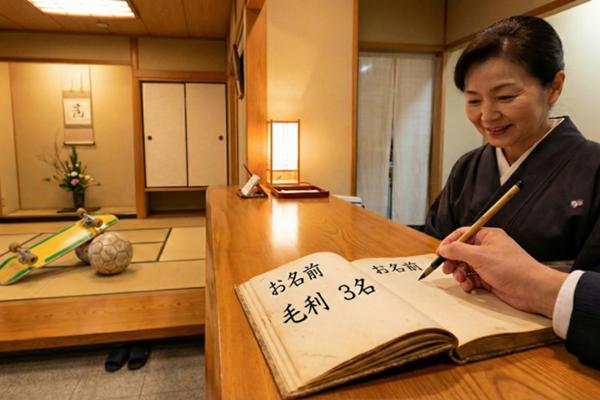 お名前
毛利 3名
お名前